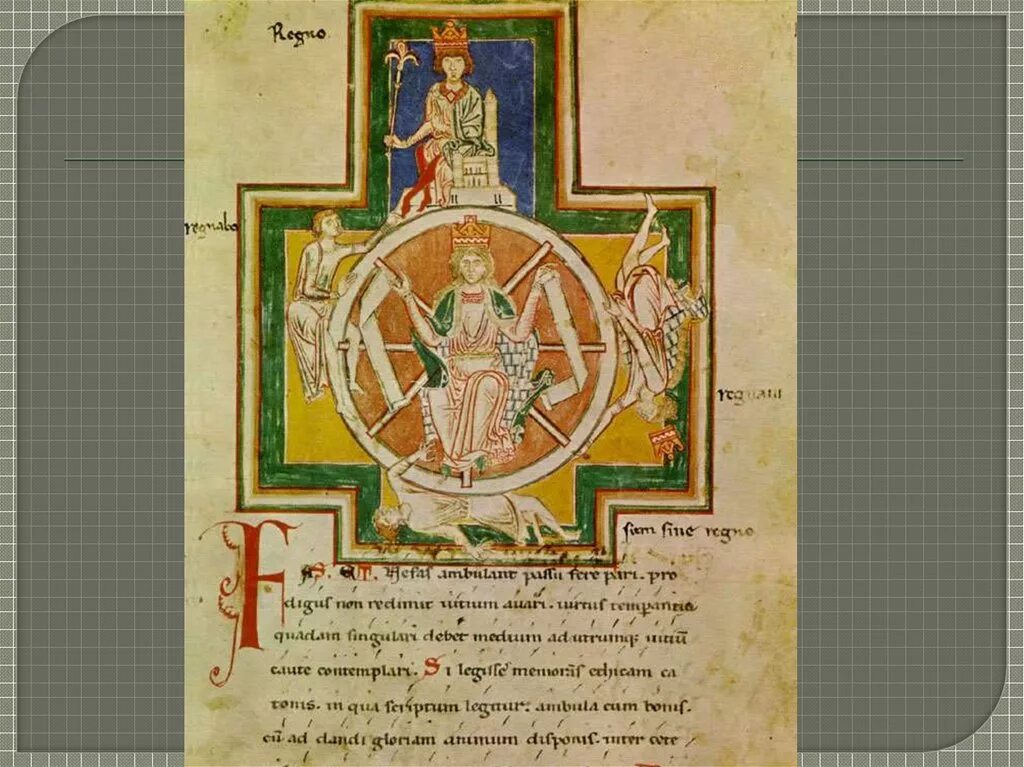 Regno
regnabo
regnaui
sum sine regno
FAS. ET. Nefas ambulant passu fere pari. pro
digus non redimit uitium auari. uirtus temperantia
quadam singulari debet medium ad utrumque uitiū
caute contemplari. Si legisse memoras ethicam ca
tonis. in qua scriptum legitur. ambula cum bonis.
cū ad dandi gloriam animum disponis. inter cete